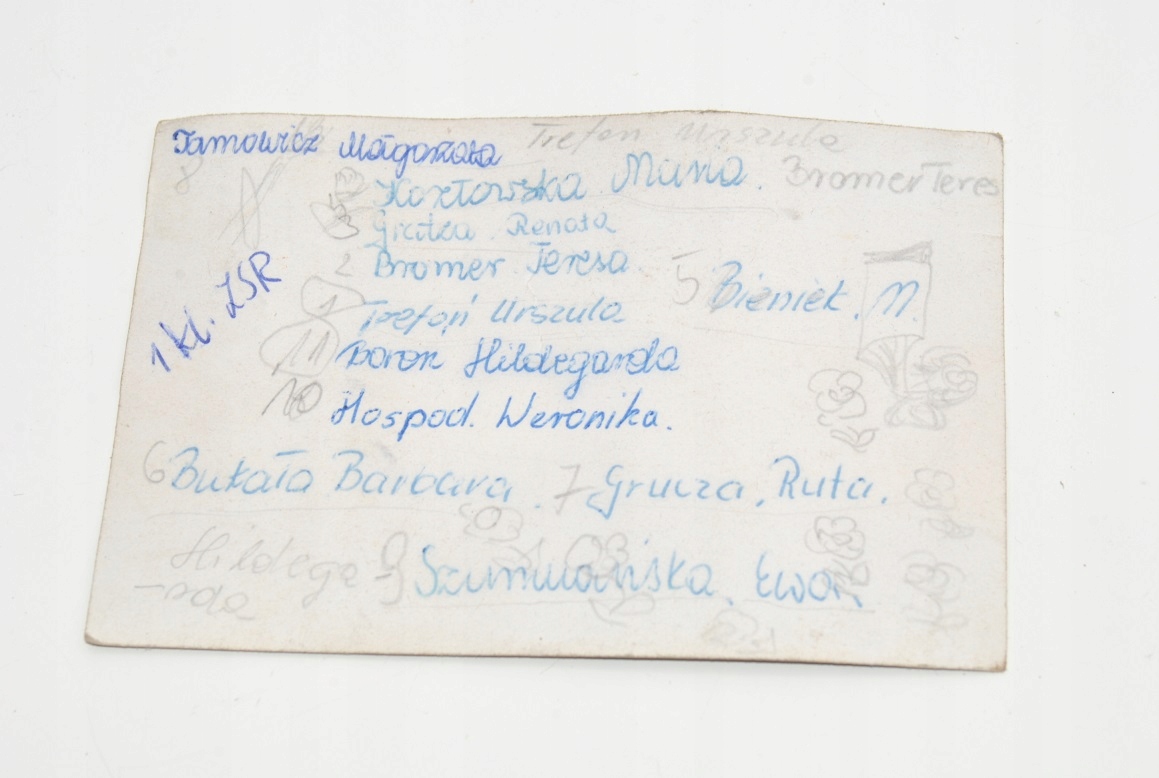 Tamowicz Małgorzata Trefon Urszula
8 Kozłowska Maria. Bromer Teres
3 Gritza Renata
2 Bromer Teresa 5 Bieniek. M.
1 Trefoń Urszula
1 kl. ZSR
11 Hildegarda
10 Hospod. Weronika.
6 Bukała Barbara. 7 Grucza. Ruta.
Hildega 9 Ewa.
-rda